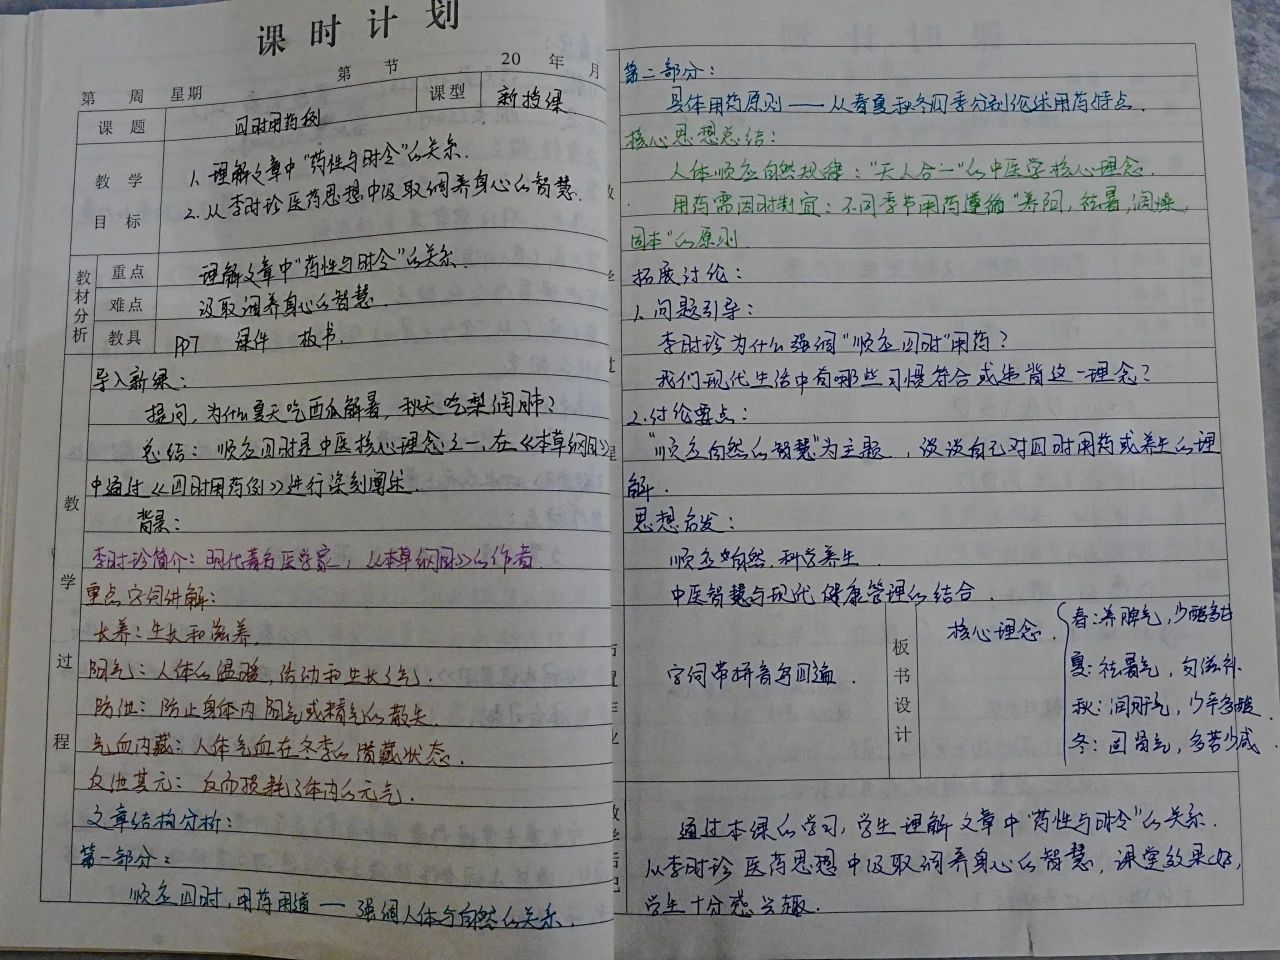 课时计划
第 节 20 年 月
第 周 星期
课型 新授课
课题 四时用药例
教学目标
1、理解文章中“药性与时令”的关系.
2、从李时珍医药思想中汲取调养身心的智慧.
教材分析
重点 理解文章中“药性与时令”的关系.
难点 汲取调养身心的智慧.
教具 PPT 课件 板书.
教学过程
导入新课：
提问，为什么夏天吃西瓜解暑，秋天吃梨润肺？
总结：顺应四时是中医核心理念之一，在《本草纲目》
中通过《四时用药例》进行深刻阐述.
背景：
李时珍简介：明代著名医学家，《本草纲目》的作者
重点字词讲解：
长养：生长和滋养.
阳气：人体的温暖，活动和生长之气.
防泄：防止身体内阳气或精气的散失.
气血内藏：人体气血在冬季的潜藏状态.
反泄其元：反而损耗了体内的元气.
文章结构分析：
第一部分：
顺应四时，用药用道 — 强调人体与自然的关系.
第二部分：
具体用药原则 —— 从春夏秋冬四季分别论述用药特点.
核心思想总结：
人体顺应自然规律：“天人合一”的中医学核心理念.
用药需因时制宜：不同季节用药遵循“养阳，祛暑，润燥，
固本”的原则
拓展讨论：
1、问题引导：
李时珍为什么强调“顺应四时”用药？
我们现代生活中有哪些习惯符合或违背这一理念？
2.讨论要点：
“顺应自然的智慧”为主题，谈谈自己对四时用药或养生的理
解.
思想启发：
顺应自然，科学养生
中医智慧与现代健康管理的结合.
字词带拼音写四遍.
板书设计
核心理念.
春：养脾气，少酸多甘
夏：祛暑气，勿滋补.
秋：润肝气，少辛多酸.
冬：固肾气，多苦少咸.
通过本课的学习，学生理解文章中“药性与时令”的关系.
从李时珍医药思想中汲取调养身心的智慧，课堂效果好，
学生十分感兴趣.